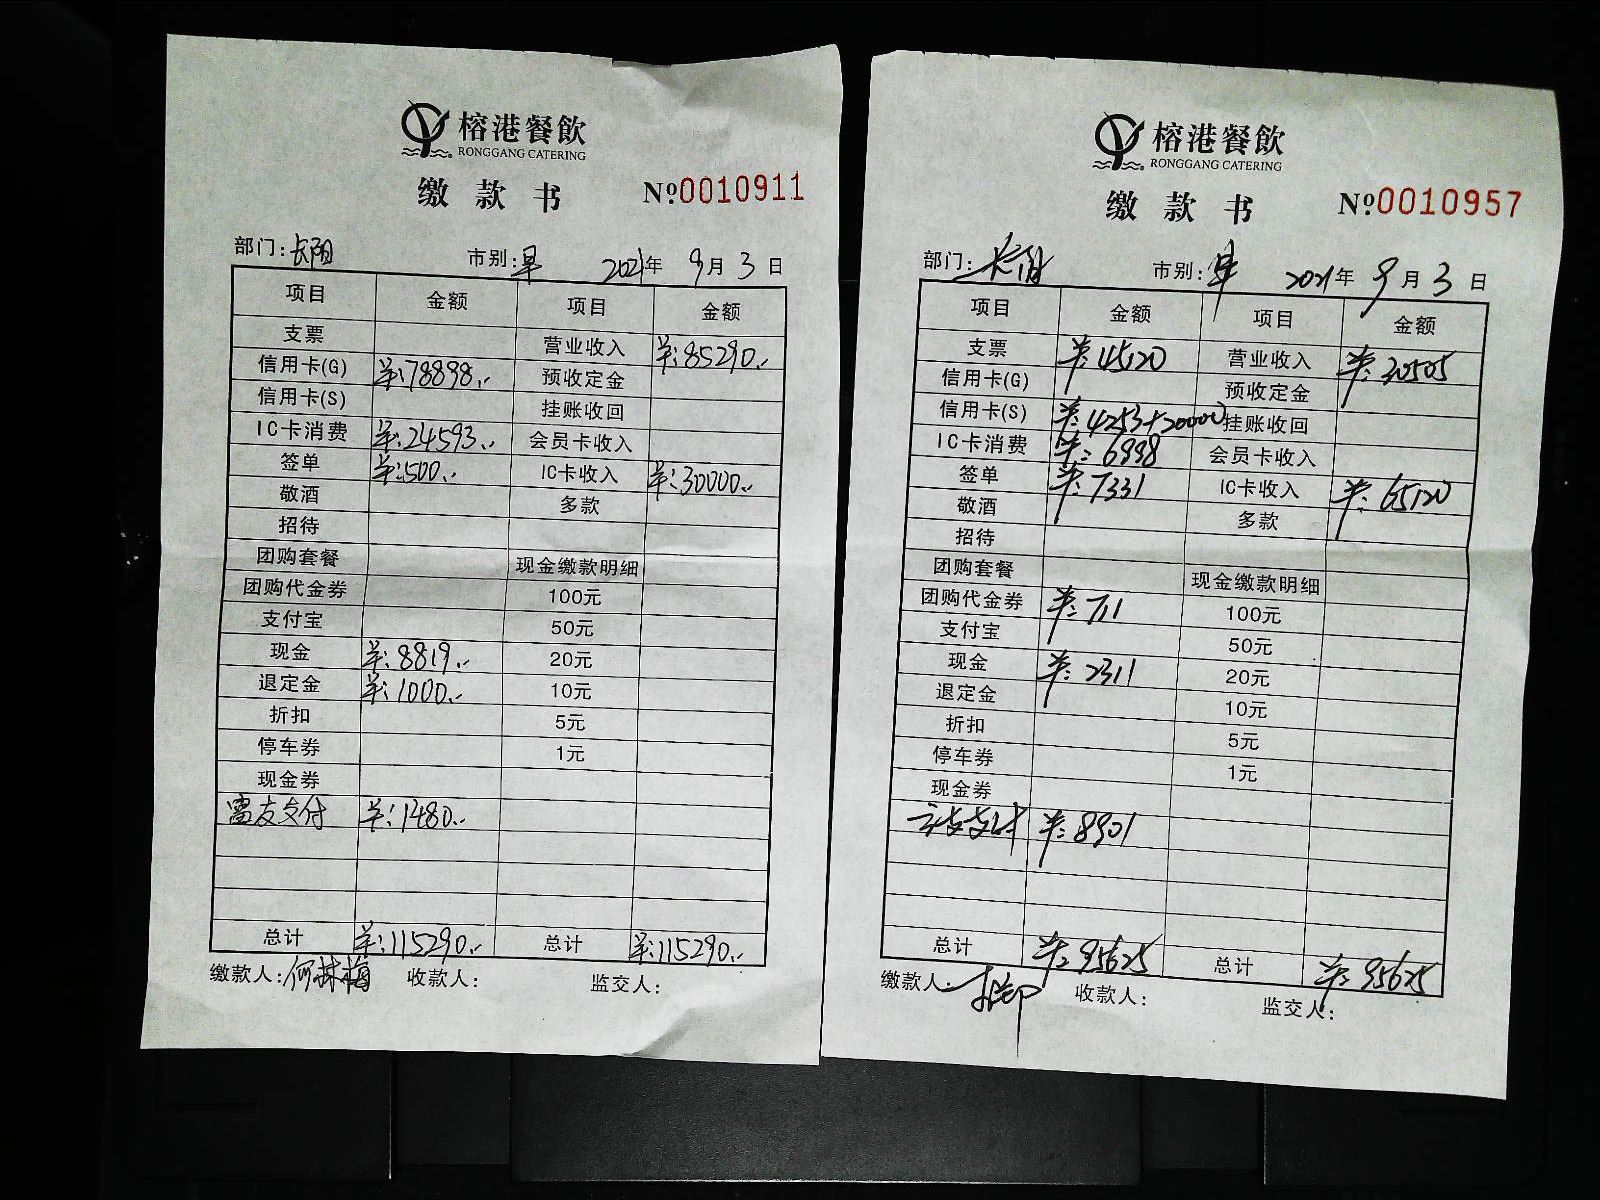 榕港餐飲
RONGGANG CATERING
缴款书 №0010911
部门:长阳 市别:早 2021年9月3日
项目 金额 项目 金额
支票 营业收入 ¥:85290..
信用卡(G) ¥:78898.. 预收定金
信用卡(S) 挂账收回
IC卡消费 ¥:24593.. 会员卡收入
签单 ¥:500.. IC卡收入 ¥:30000..
敬酒 多款
招待
团购套餐 现金缴款明细
团购代金券 100元
支付宝 50元
现金 ¥:8819.. 20元
退定金 ¥:1000.. 10元
折扣 5元
停车券 1元
现金券
富友支付 ¥:1480..
总计 ¥:115290.. 总计 ¥:115290..
缴款人:何林梅 收款人: 监交人:
榕港餐飲
RONGGANG CATERING
缴款书 №0010957
部门: 市别: 2021年9月3日
项目 金额 项目 金额
支票 ¥:45120 营业收入 ¥:30505
信用卡(G) 预收定金
信用卡(S) ¥:4253+20000 挂账收回
IC卡消费 ¥:6998 会员卡收入
签单 ¥:7331 IC卡收入 ¥:65120
敬酒 多款
招待
团购套餐 现金缴款明细
团购代金券 ¥:711 100元
支付宝 50元
现金 ¥:2311 20元
退定金 10元
折扣 5元
停车券 1元
现金券
支付 ¥:8901
总计 ¥:95625 总计 ¥:95625
缴款人: 收款人: 监交人: